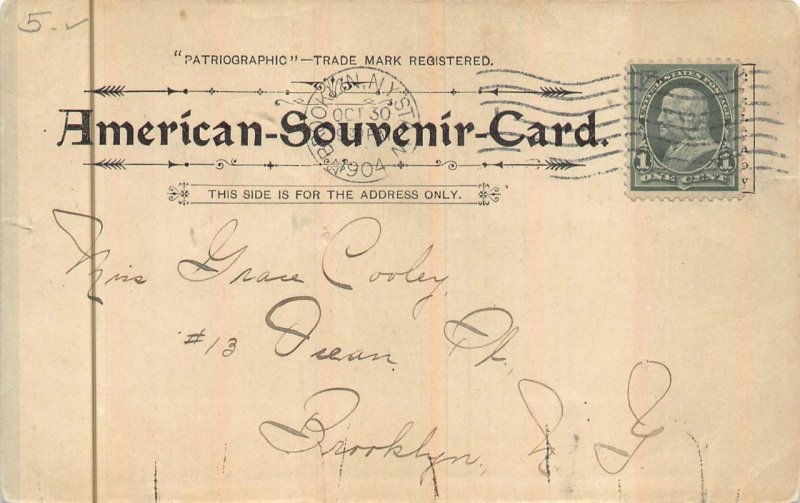 5.-
"PATRIOGRAPHIC"—TRADE MARK REGISTERED.
American-Souvenir-Card.
THIS SIDE IS FOR THE ADDRESS ONLY.
BROOKLYN, N.Y. STA.
OCT 30
1904
UNITED STATES POSTAGE
1 1
ONE CENT
Miss Grace Cooley,
#13 Ocean Pl.
Brooklyn, N Y